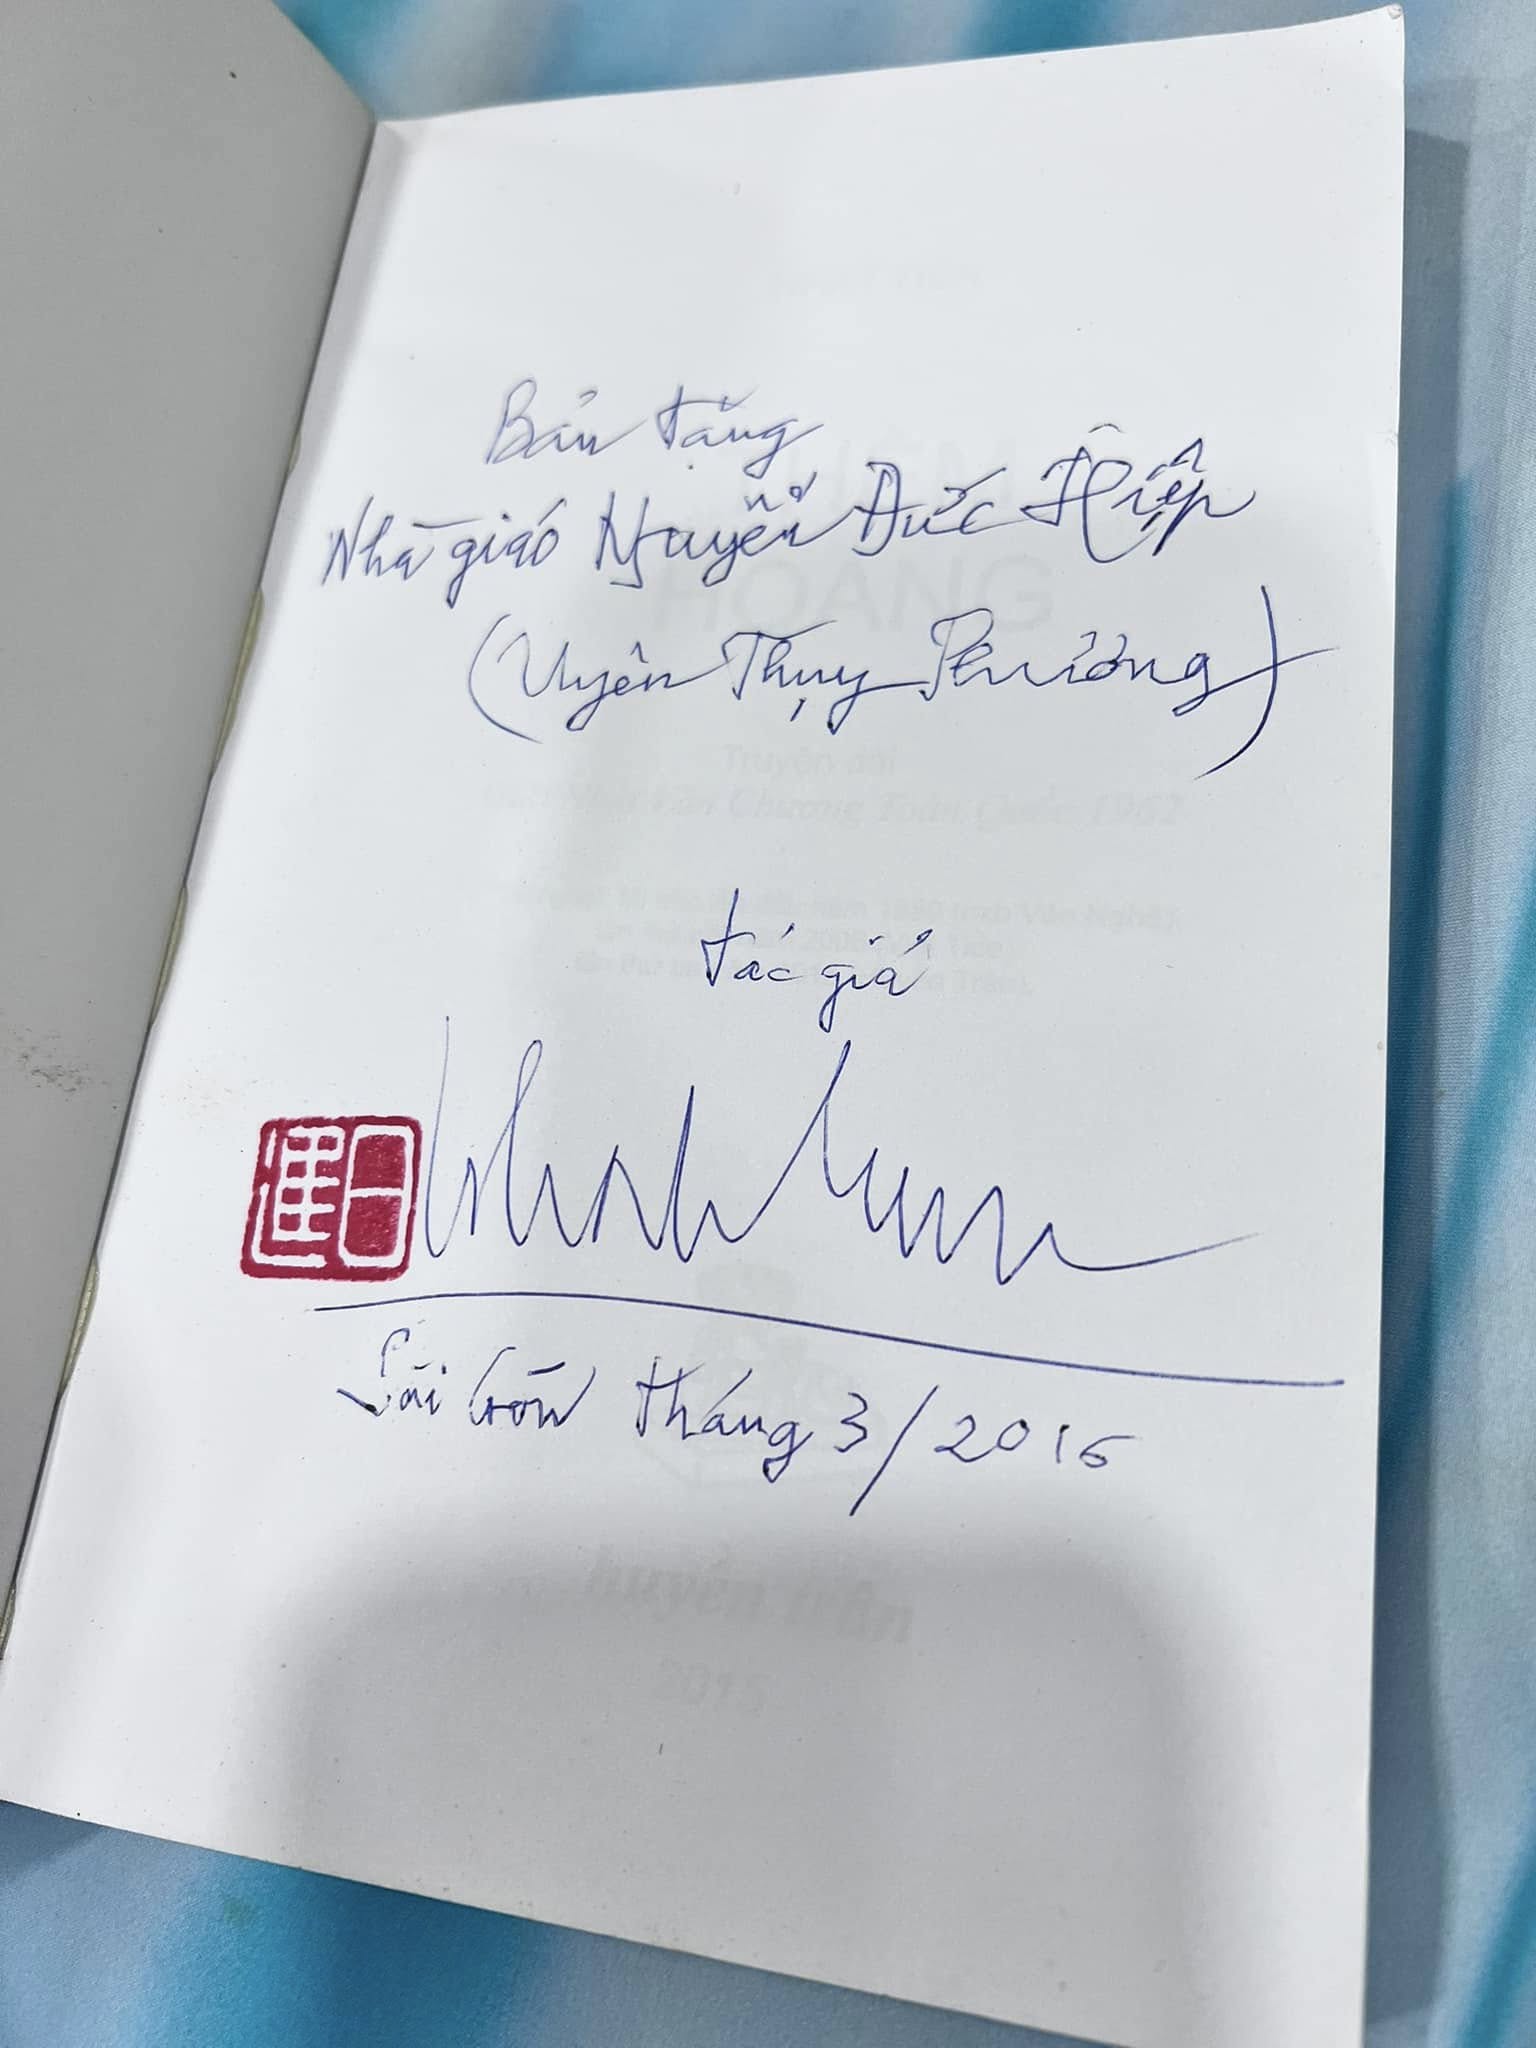 Bản tặng
Nhà giáo Nguyễn Đức Hiệp
(Uyên Thụy Phương)
Tác giả
進日
Sài Gòn tháng 3/2016
HOÀNG
Truyện dài
Văn Chương Toàn Quốc 1962
huyền trân
2015